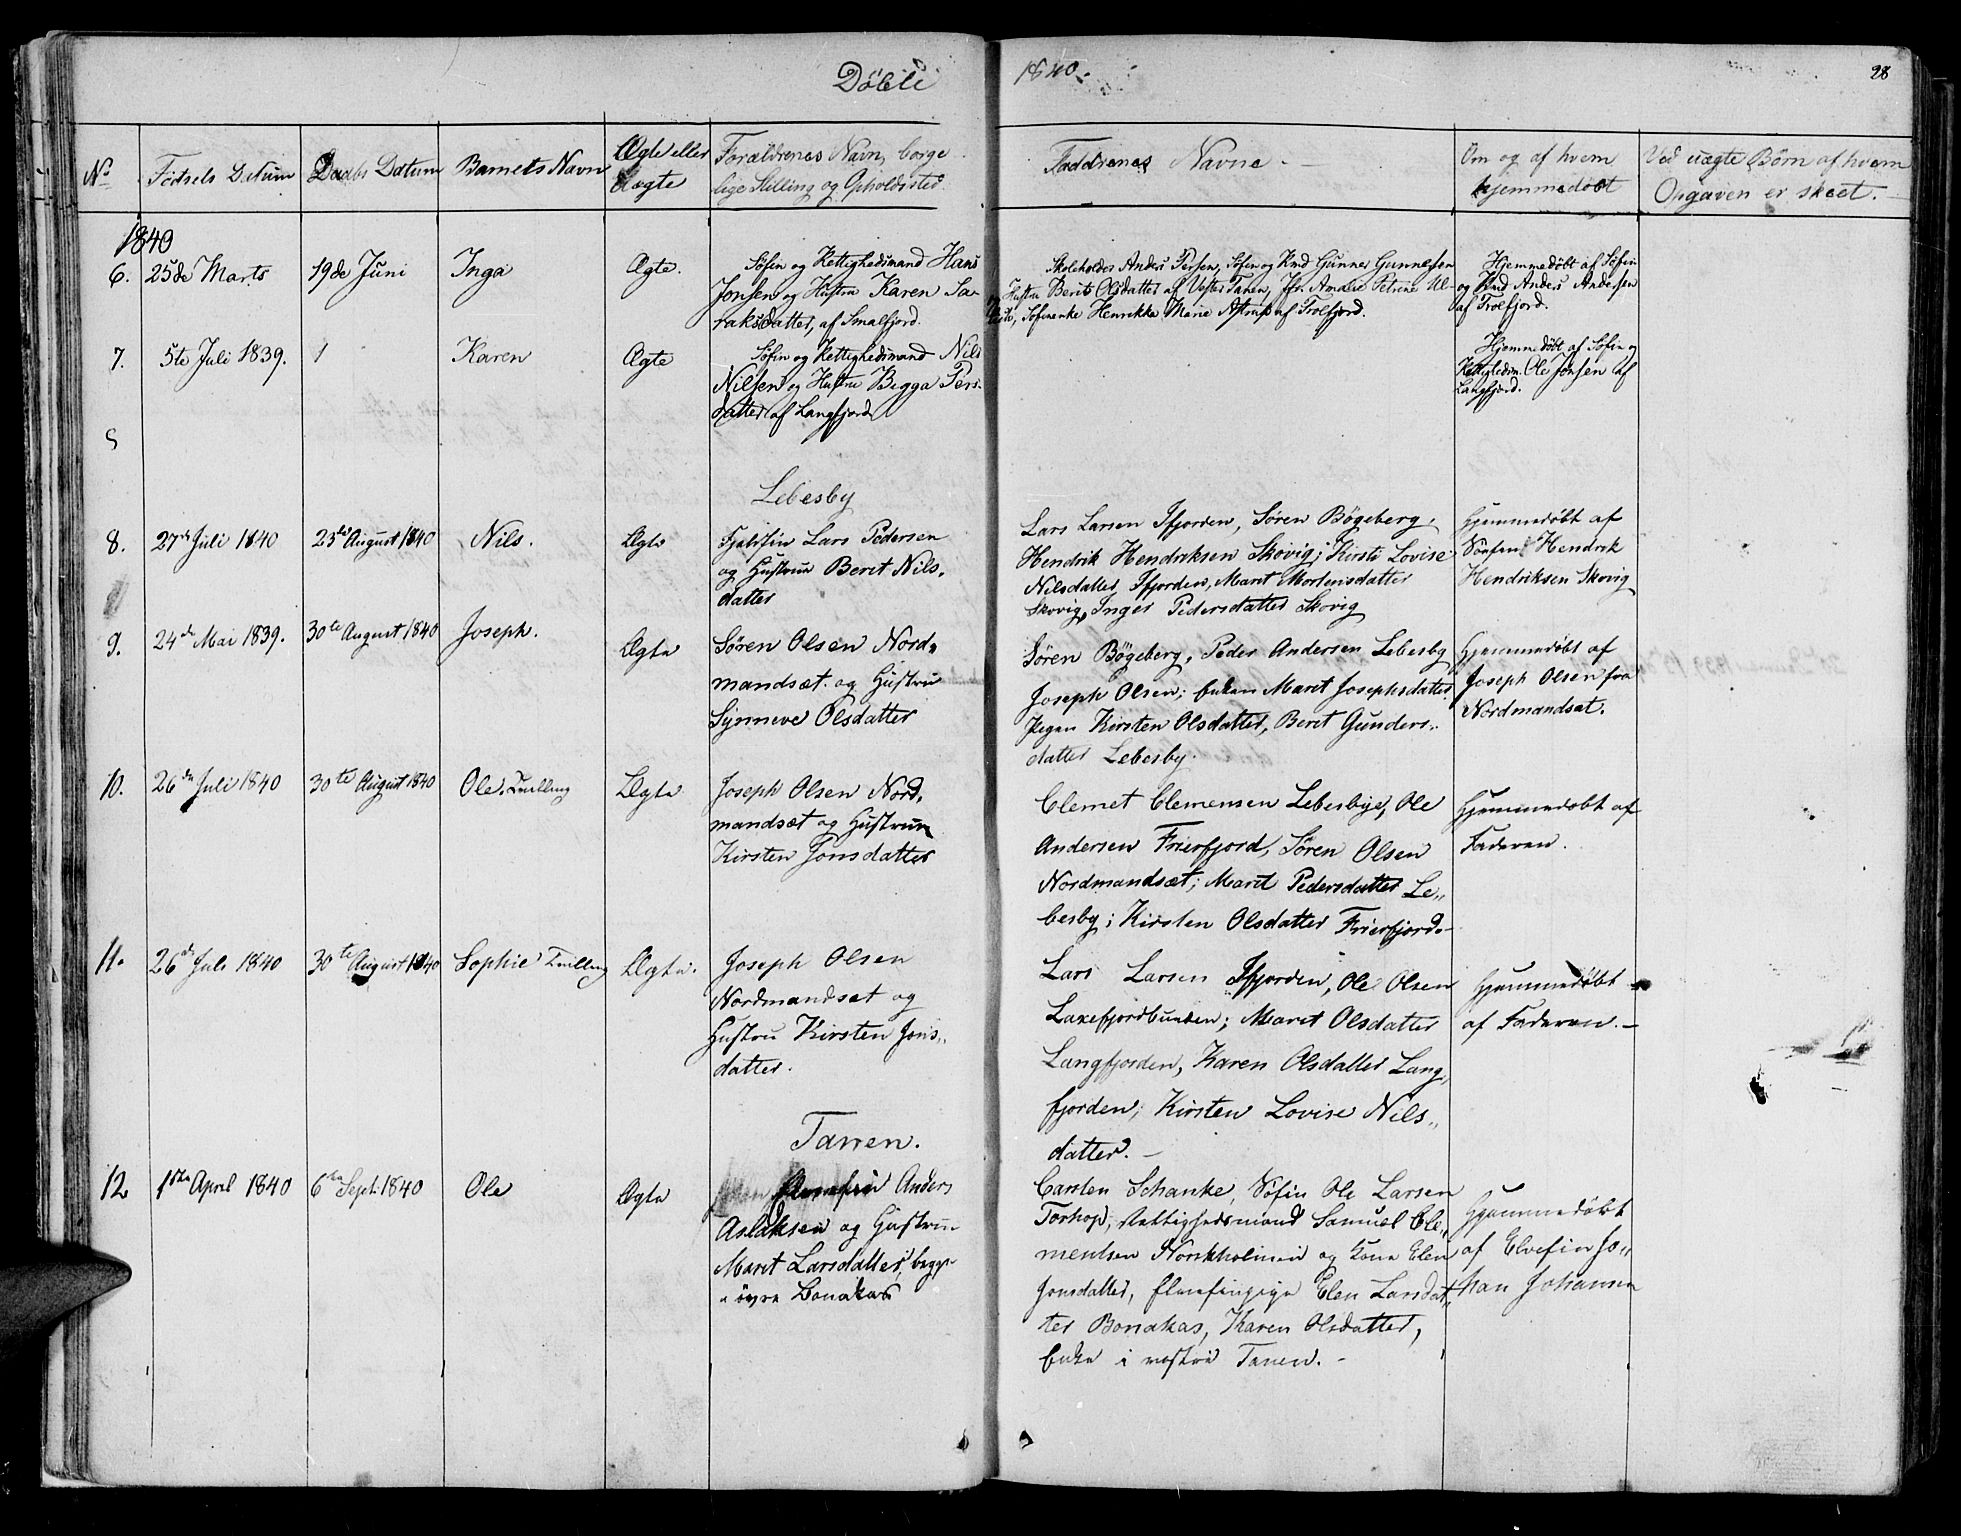 Döbte 1840. 28
No
Födsels Datum
Daabs Datum
Barnets Navn
Ægte eller
Uægte
Forældrenes Navn, borger
lige Stilling og Opholdssted.
Faddrenes Navne. —
Om og af hvem
hjemmedöbt
Ved uægte Børn af hvem
Opgaven er skeet. —
1840
6. 25de Marts 19de Juni Inga Ægte.
Søfin og Rettighedsmand Hans
Jonsen og Hustru Karen Sa-
raksdatter, af Smalfjord.
Skoleholder Anders Persen, Søfin og Rmd Gunner Gunnersen
og Hustru Berit Olsdatter af Vester Tanen, Jfr. Amalie Petrine Ul-
, Söfinenke Henrikka Marie Astrup af Trolfjord.
Hjemmedöbt af Söfin
og Rmd Anders Andersen
af Trolfjord.
7. 5te Juli 1839. Karen Ægte
Søfin og Rettighedsmand Nils
Nilsen og Hustru Begga Pers-
datter af Langfjord
Hjemmedöbt af Söfin og
Rettighedsm. Ole Jonsen af
Langfjord.
Lebesby
8. 27de Juli 1840 23de August 1840 Nils. Ægte
Fjeldfin Lars Pedersen
og Hustrue Beret Nils-
datter
Lars Larsen Ifjorden, Sören Bögeberg,
Hendrik Hendriksen Skovig; Kirsti Lovise
Nilsdatter Ifjorden, Maret Mortensdatter
Skovig, Inger Pedersdatter Skovig
Hjemmedöbt af
Söefin Hendrik
Hendriksen Skovig
9. 24de Mai 1839. 30te August 1840 Joseph. Ægte
Sören Olsen Nord-
mandsæt. og Hustru
Synneve Olsdatter
Sören Bögeberg, Peder Andersen Lebesby
Joseph Olsen; Enken Maret Josephsdatter
Pigen Kirsten Olsdatter, Beret Gunders-
datter Lebesby.
Hjemmedöbt af
Joseph Olsen fra
Nordmandsæt.
10. 26de Juli 1840 30te August 1840 Ole. Tvilling Ægte
Joseph Olsen Nord-
mandsæt og Hustrue
Kirsten Jonsdatter
Clemet Clemensen Lebesbye, Ole
Andersen Frierfjord, Sören Olsen
Nordmandsæt; Maret Pedersdatter Le-
besby; Kirsten Olsdatter Frierfjord.
Hjemmedöbt af
Faderen.
11. 26de Juli 1840 30te August 1840 Sophie Tvilling Ægte.
Joseph Olsen
Nordmandsæt og
Hustru Kirsten Jons-
datter.
Lars Larsen Ifjorden, Ole Olsen
Laxefjordbunden; Maret Olsdatter
Langfjorden, Karen Olsdatter Lang-
fjorden; Kirsten Lovise Nils-
datter. —
Hjemmedöbt
af Faderen. —
Tanen.
12 1ste April 1840 6te Sept. 1840 Ole Ægte
Anders
Aslaksen og Hustrue
Maret Larsdatter, begge
i övre Bonakas
Carsten Schanke, Söfin Ole Larsen
Torhop, Rettighedsmand Samuel Cle-
mentsen Norskholmen og Kone Elen
Jonsdatter, Elen Larsdat-
ter Bonakas, Karen Olsdatter,
Enke i vestre Tanen. —
Hjemmedöbt
af Elvefin Jo-
han Johansen